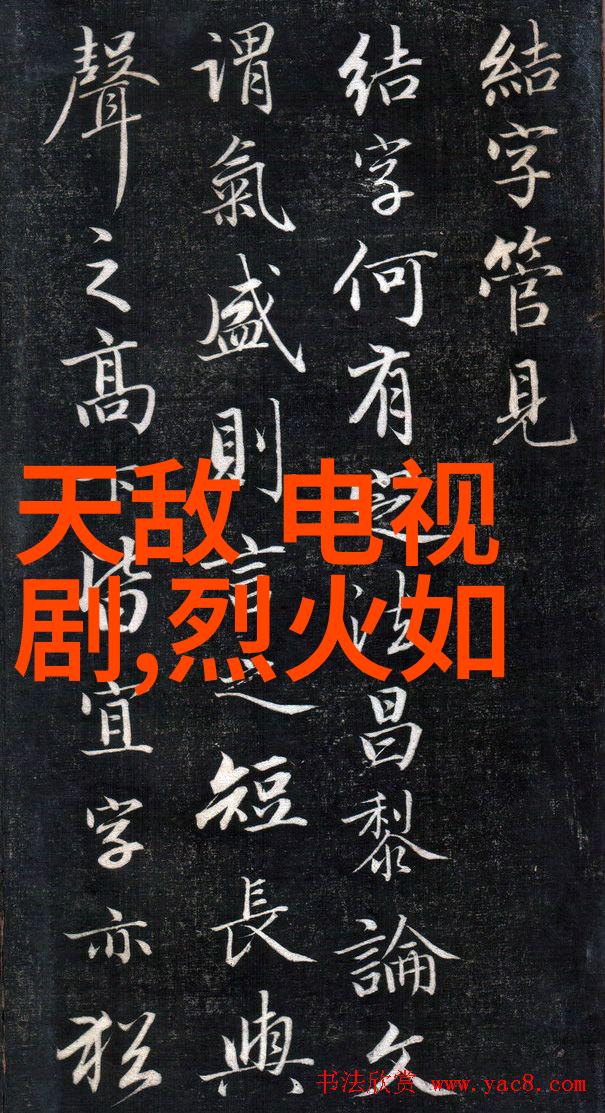 結字管見
結字何有定法昌黎論文
謂氣盛則言之短長與
聲之高下皆宜字亦猶
天敌 电视
剧,烈火如
书法欣赏 www.yac8.com